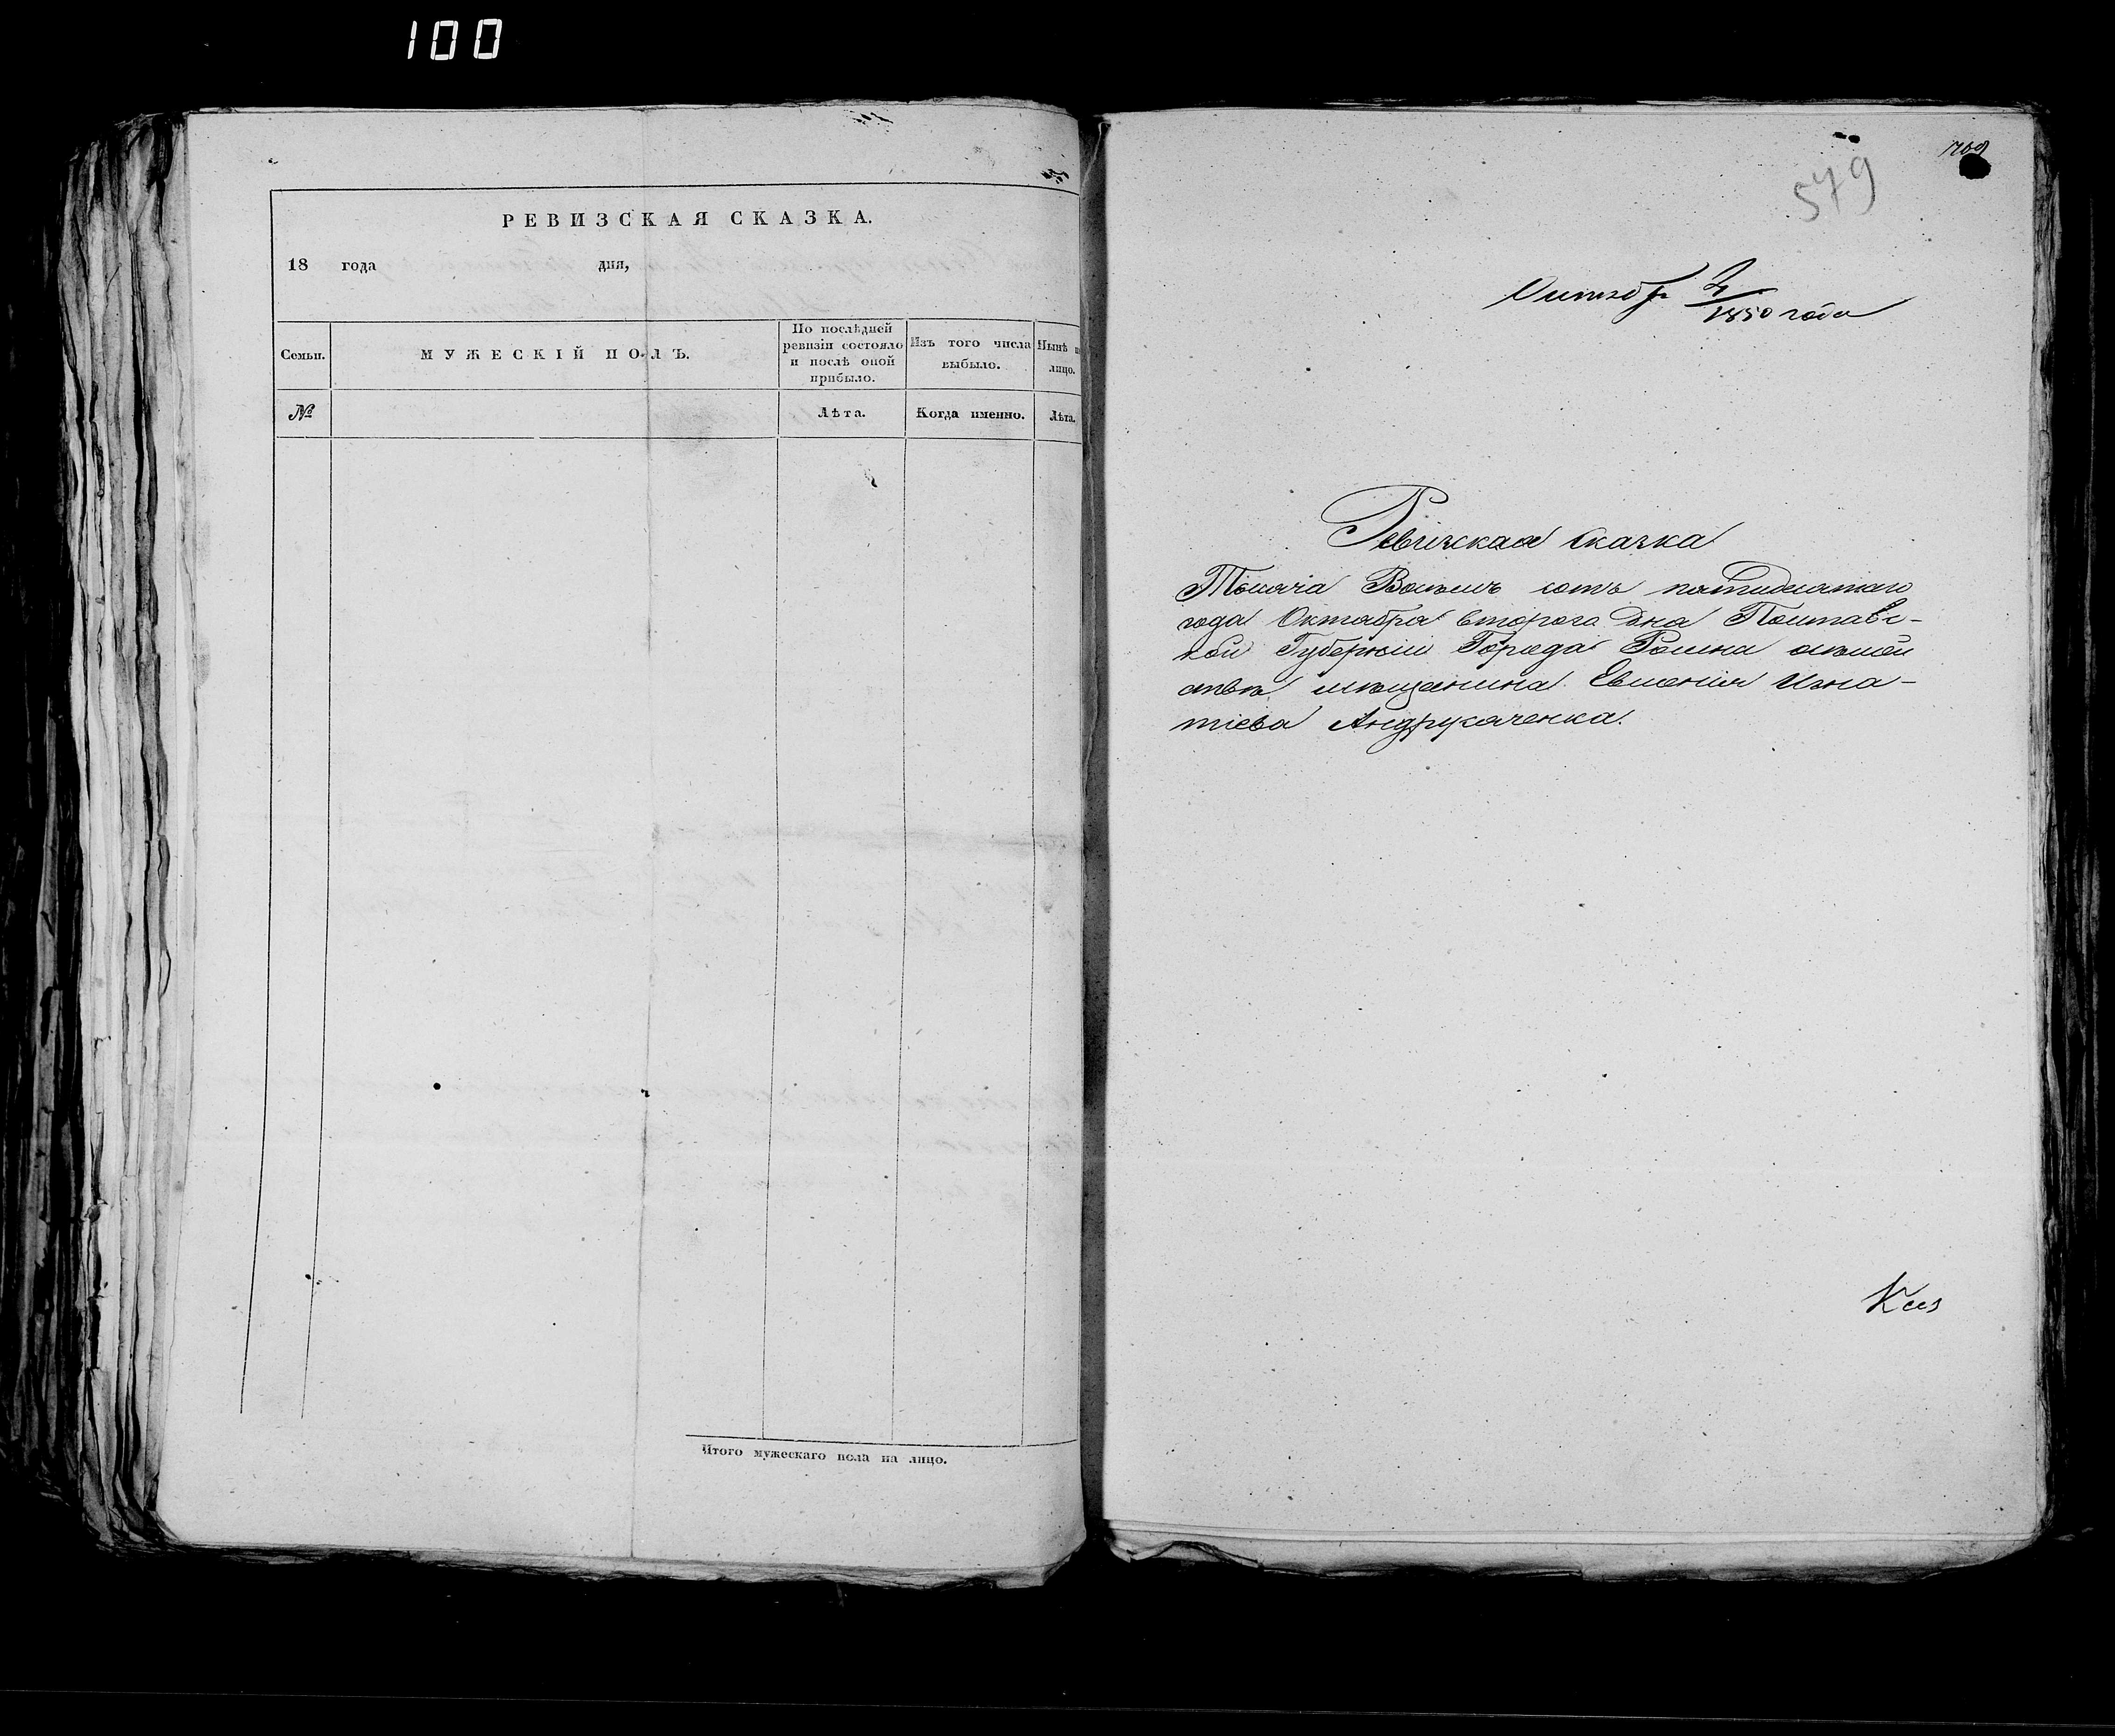 100
РЕВИЗСКАЯ СКАЗКА.
18 года дня,
Семьи.
МУЖЕСКІЙ ПОЛЪ.
По послѣдней
ревизіи состояло
и послѣ оной
прибыло.
Изъ того числа
выбыло.
Нынѣ
лицо.
№
Лѣта.
Когда именно.
Лѣта.
Итого мужескаго пола на лицо.
579
Октября 2
1850 года
Ревизская сказка
Тысяча Восемь сотъ пятидесятаго
года Октября второго дня Полтавс-
кой Губерніи Города Ромна
мѣщанина Евменія Игна-
тіева Андрусяченка.